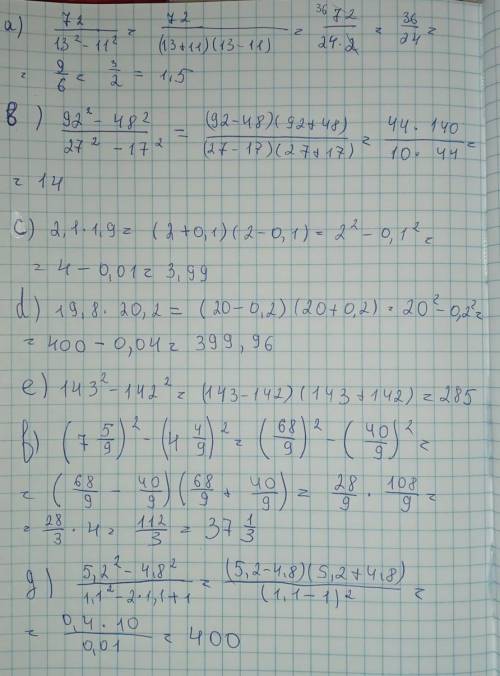 a) 72/(13² - 11²) = 72/((13+11)(13-11)) = 36 72/(24·2) = 36/24 =
= 9/6 = 3/2 = 1,5
b) (92² - 48²)/(27² - 17²) = ((92-48)(92+48))/((27-17)(27+17)) = (44·140)/(10·44) =
= 14
c) 2,1·1,9 = (2+0,1)(2-0,1) = 2² - 0,1² =
= 4 - 0,01 = 3,99
d) 19,8·20,2 = (20-0,2)(20+0,2) = 20² - 0,2² =
= 400 - 0,04 = 399,96
e) 143² - 142² = (143-142)(143+142) = 285
b) (7 5/9)² - (4 4/9)² = (68/9)² - (40/9)² =
= (68/9 - 40/9)(68/9 + 40/9) = 28/9 · 108/9 =
= 28/3 · 4 = 112/3 = 37 1/3
g) (5,2² - 4,8²)/(1,1² - 2·1,1+1) = ((5,2-4,8)(5,2+4,8))/(1,1-1)² =
= (0,4·10)/0,01 = 400